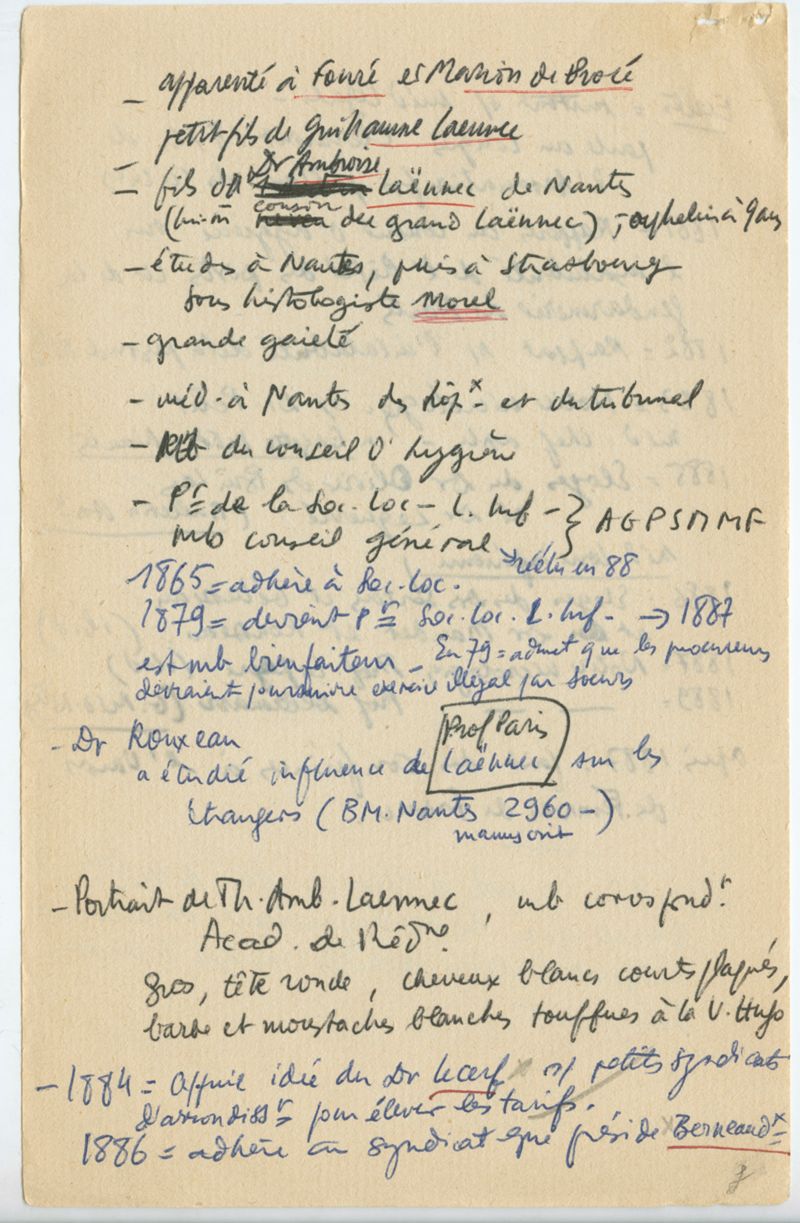 - apparenté à Fouré et Marion de Procé
petit-fils de Guillaume Laennec
- fils du Dr Ambroise Laënnec de Nantes
(lui-m cousin du grand Laënnec) ; orphelin à 9 ans
- études à Nantes, puis à Strasbourg
sous histologiste Morel
- grande gaieté
- méd. à Nantes des hôpx et du tribunal
- du conseil d'hygiène
- Pr de la Soc. Loc - L. Inf - } AGPSMMF
mb conseil général
réélu en 88
1865 = adhère à Soc. Loc.
1879 = devient Pr Soc. Loc. L. Inf. → 1887
est mb bienfaiteur - En 79 = admet que les procureurs
devraient poursuivre exercice illégal par soeurs
- Dr Rouxeau
a étudié influence de Laënnec Prof Paris sur les
étrangers (BM. Nantes 2960 -)
manuscrit
- Portrait de Th. Amb. Laennec, mb correspondt
Acad. de Médne.
gros, tête ronde, cheveux blancs courts plaqués,
barbe et moustaches blanches touffues à la V. Hugo
- 1884 = appuie idée du Dr Lecerf petits syndicats
d'arrondisst pour élever les tarifs.
1886 = adhère au syndicat que préside